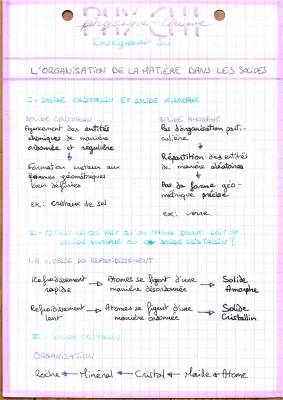 PHY-CHI
physique-chimie
Enseignement Sci
L'ORGANISATION DE LA MATIÈRE DANS LES SOLIDES
I - SOLIDE CRISTALLIN ET SOLIDE AMORPHE
SOLIDE CRISTALLIN
Agencement des entités
chimiques de manière
ordonnée et régulière
Formation veteaux aux
formes géométriques
bien définies
ex: cristaux de sel
SOLIDE AMORPHE
Pas d'organisation parti-
culière
Répartition des entités
de manière aléatoires
Pas de forme géo-
métrique précise
ex: verre
SOLIDE AMORPHE OU SOLIDE CRISTALLIN ?
LA VITESSE DE REFROIDISSEMENT
Refroidissement rapide → Atomes se figent d'une manière désordonnée → Solide Amorphe
Refroidissement lent → Atomes se figent d'une manière ordonnée → Solide Cristallin
SOLIDE CRISTALLIN
ORGANISATION
Roche ← Minéral ← Cristal ← Maille ← Atome